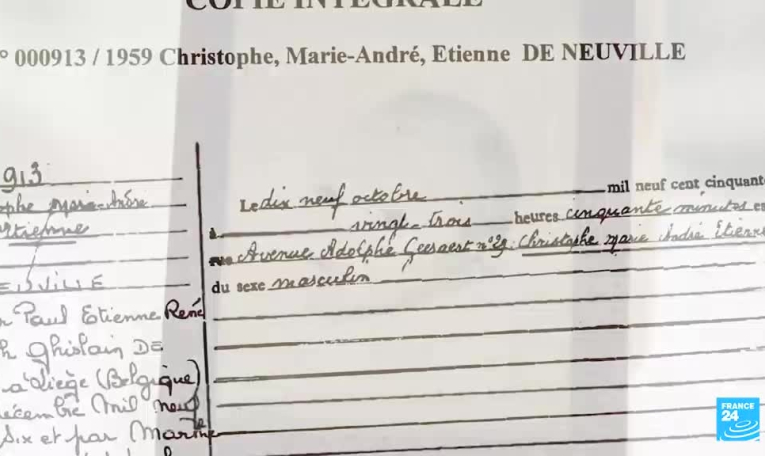 COPIE INTEGRALE
° 000913 / 1959 Christophe, Marie-André, Etienne DE NEUVILLE
913
ophe Marie-André
Etienne
EUVILLE
Paul Etienne René
h Ghislain DE
à Liège (Belgique)
écembre mil neuf
six et par
Le dix neuf octobre mil neuf cent cinquant
à vingt-trois heures cinquante minutes es
Avenue Adolphe n° Christophe Marie André Etienne
du sexe masculin
FRANCE
24